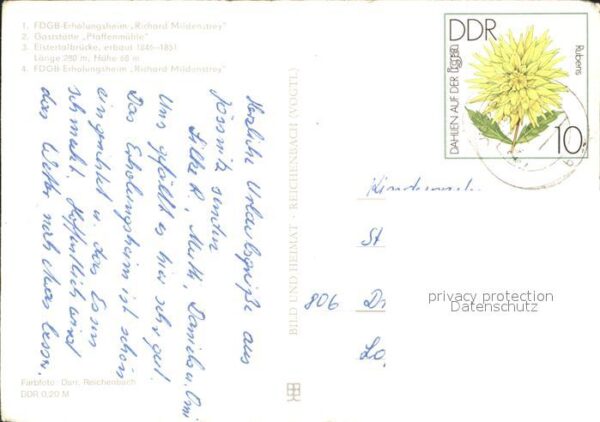 1. FDGB-Erholungsheim „Richard Mildenstrey"
2. Gaststätte „Pfaffenmühle"
3. Elstertalbrücke, erbaut 1846-1851
Länge 280 m, Höhe 68 m
4. FDGB-Erholungsheim „Richard Mildenstrey"
Herzliche Urlaubsgrüße aus
Jössnitz senden
Silke R., Mutti, Daniela u. Omi
Uns gefällt es hier sehr gut.
Das Erholungsheim ist schön
eingerichtet u. das Essen
schmeckt. Hoffentlich wird
das Wetter noch etwas besser.
Farbfoto: Darr, Reichenbach
DDR 0,20 M
BILD UND HEIMAT · REICHENBACH (VOGTL)
DDR
DAHLIEN AUF DER
Rubens
10
St
806 Dr
privacy protection
Datenschutz